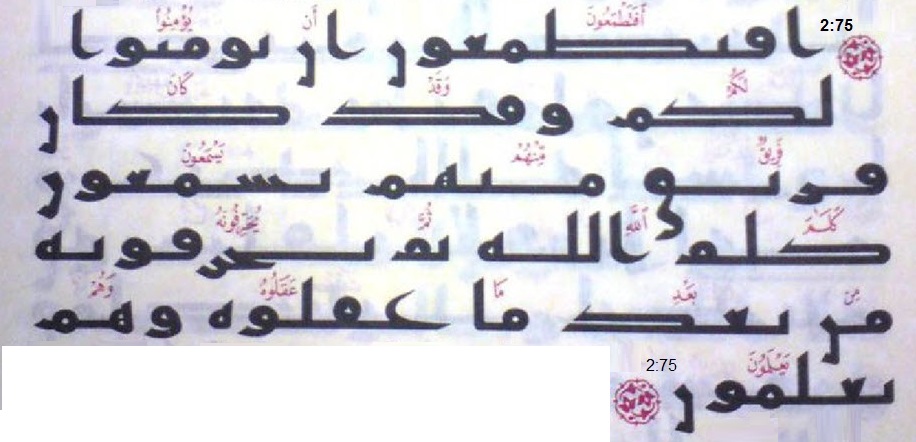 أَفَتَطْمَعُونَ أَن يُؤْمِنُوا
2:75 افتطمعون ان يومنوا
لَكُمْ وَقَدْ كَانَ
لكم وقد كان
فَرِيقٌ مِّنْهُمْ يَسْمَعُونَ
فريق منهم يسمعون
كَلَٰمَ ٱللَّهِ ثُمَّ يُحَرِّفُونَهُ
كلم الله ثم يحرفونه
مِنۢ بَعْدِ مَا عَقَلُوهُ وَهُمْ
من بعد ما عقلوه وهم
يَعْلَمُونَ 2:75
يعلمون